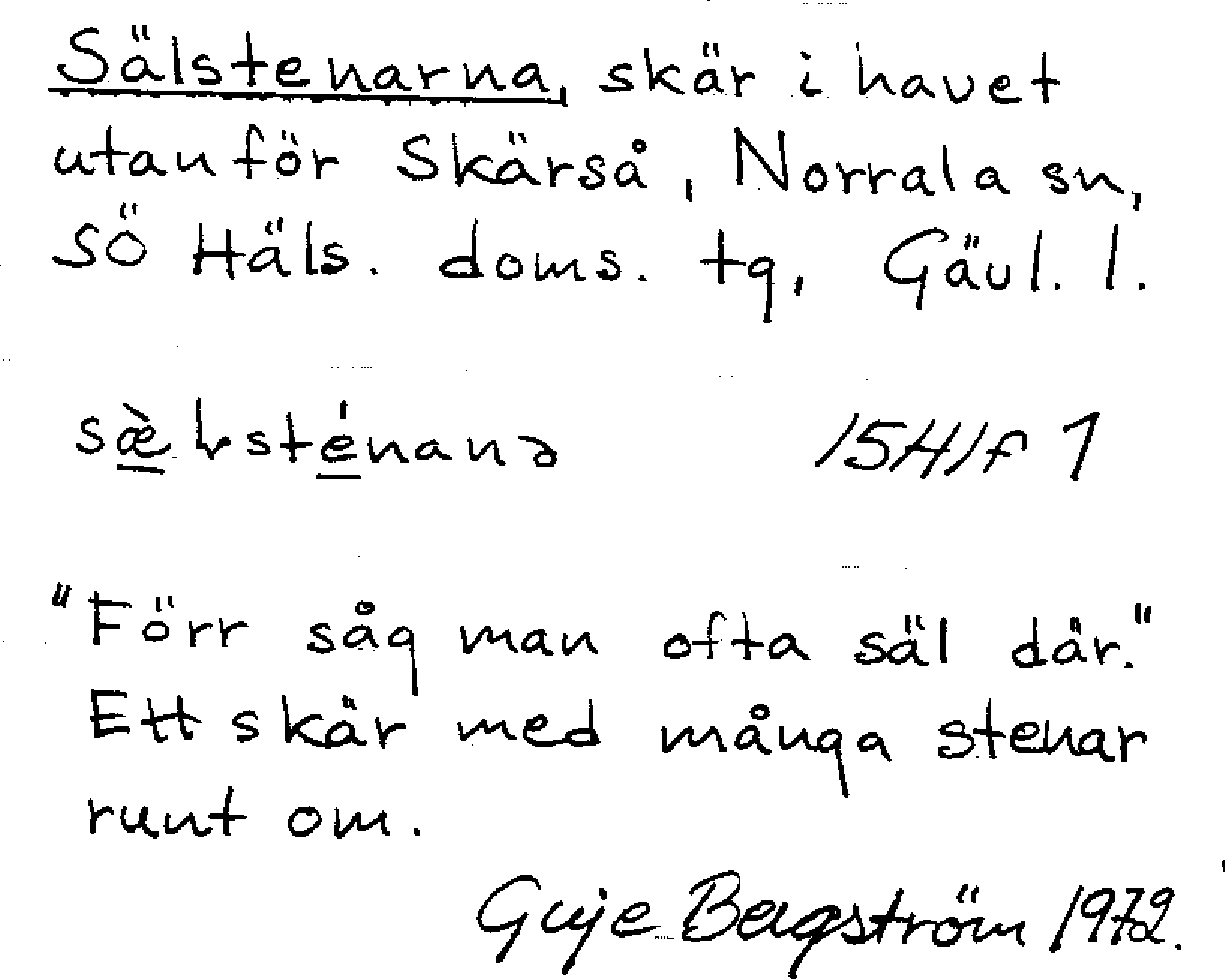 Sälstenarna, skär i havet
utanför Skärså, Norrala sn,
SÖ Häls. doms. tg, Gävl. l.
15H1f 1
"Förr såg man ofta säl där."
Ett skär med många stenar
runt om.
Guje Bergström 1972.